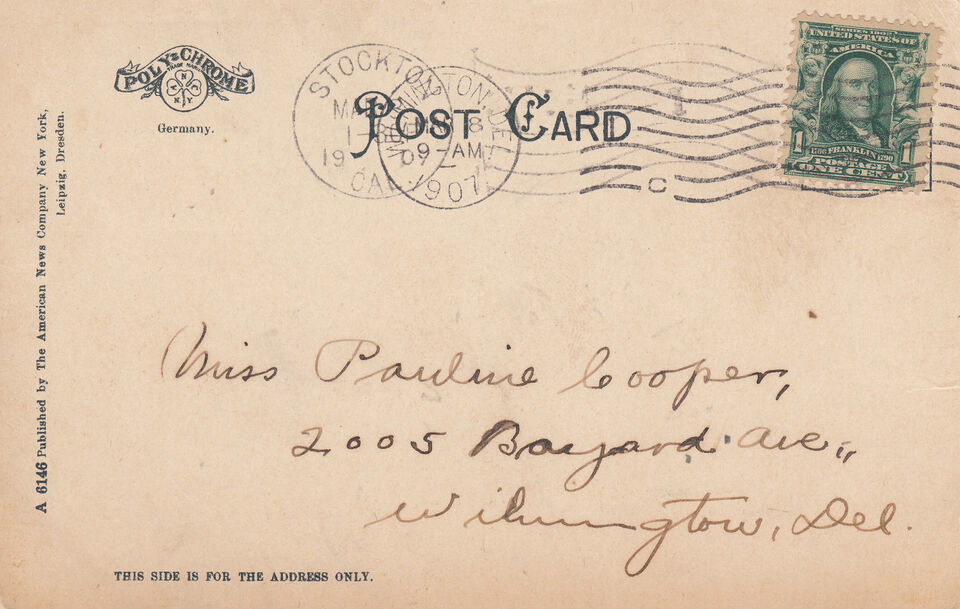 POLY-CHROME
TRADE MARK
A N C
N.Y.
Germany.
POST CARD
STOCKTON
CAL.
WILMINGTON, DEL.
09-AM
1907
C
SERIES 1902
UNITED STATES OF
AMERICA
1706 FRANKLIN 1790
1 1
POSTAGE
ONE CENT
A 6146 Published by The American News Company New York,
Leipzig, Dresden.
Miss Pauline Cooper,
2005 Bayard Ave.,
Wilmington, Del.
THIS SIDE IS FOR THE ADDRESS ONLY.